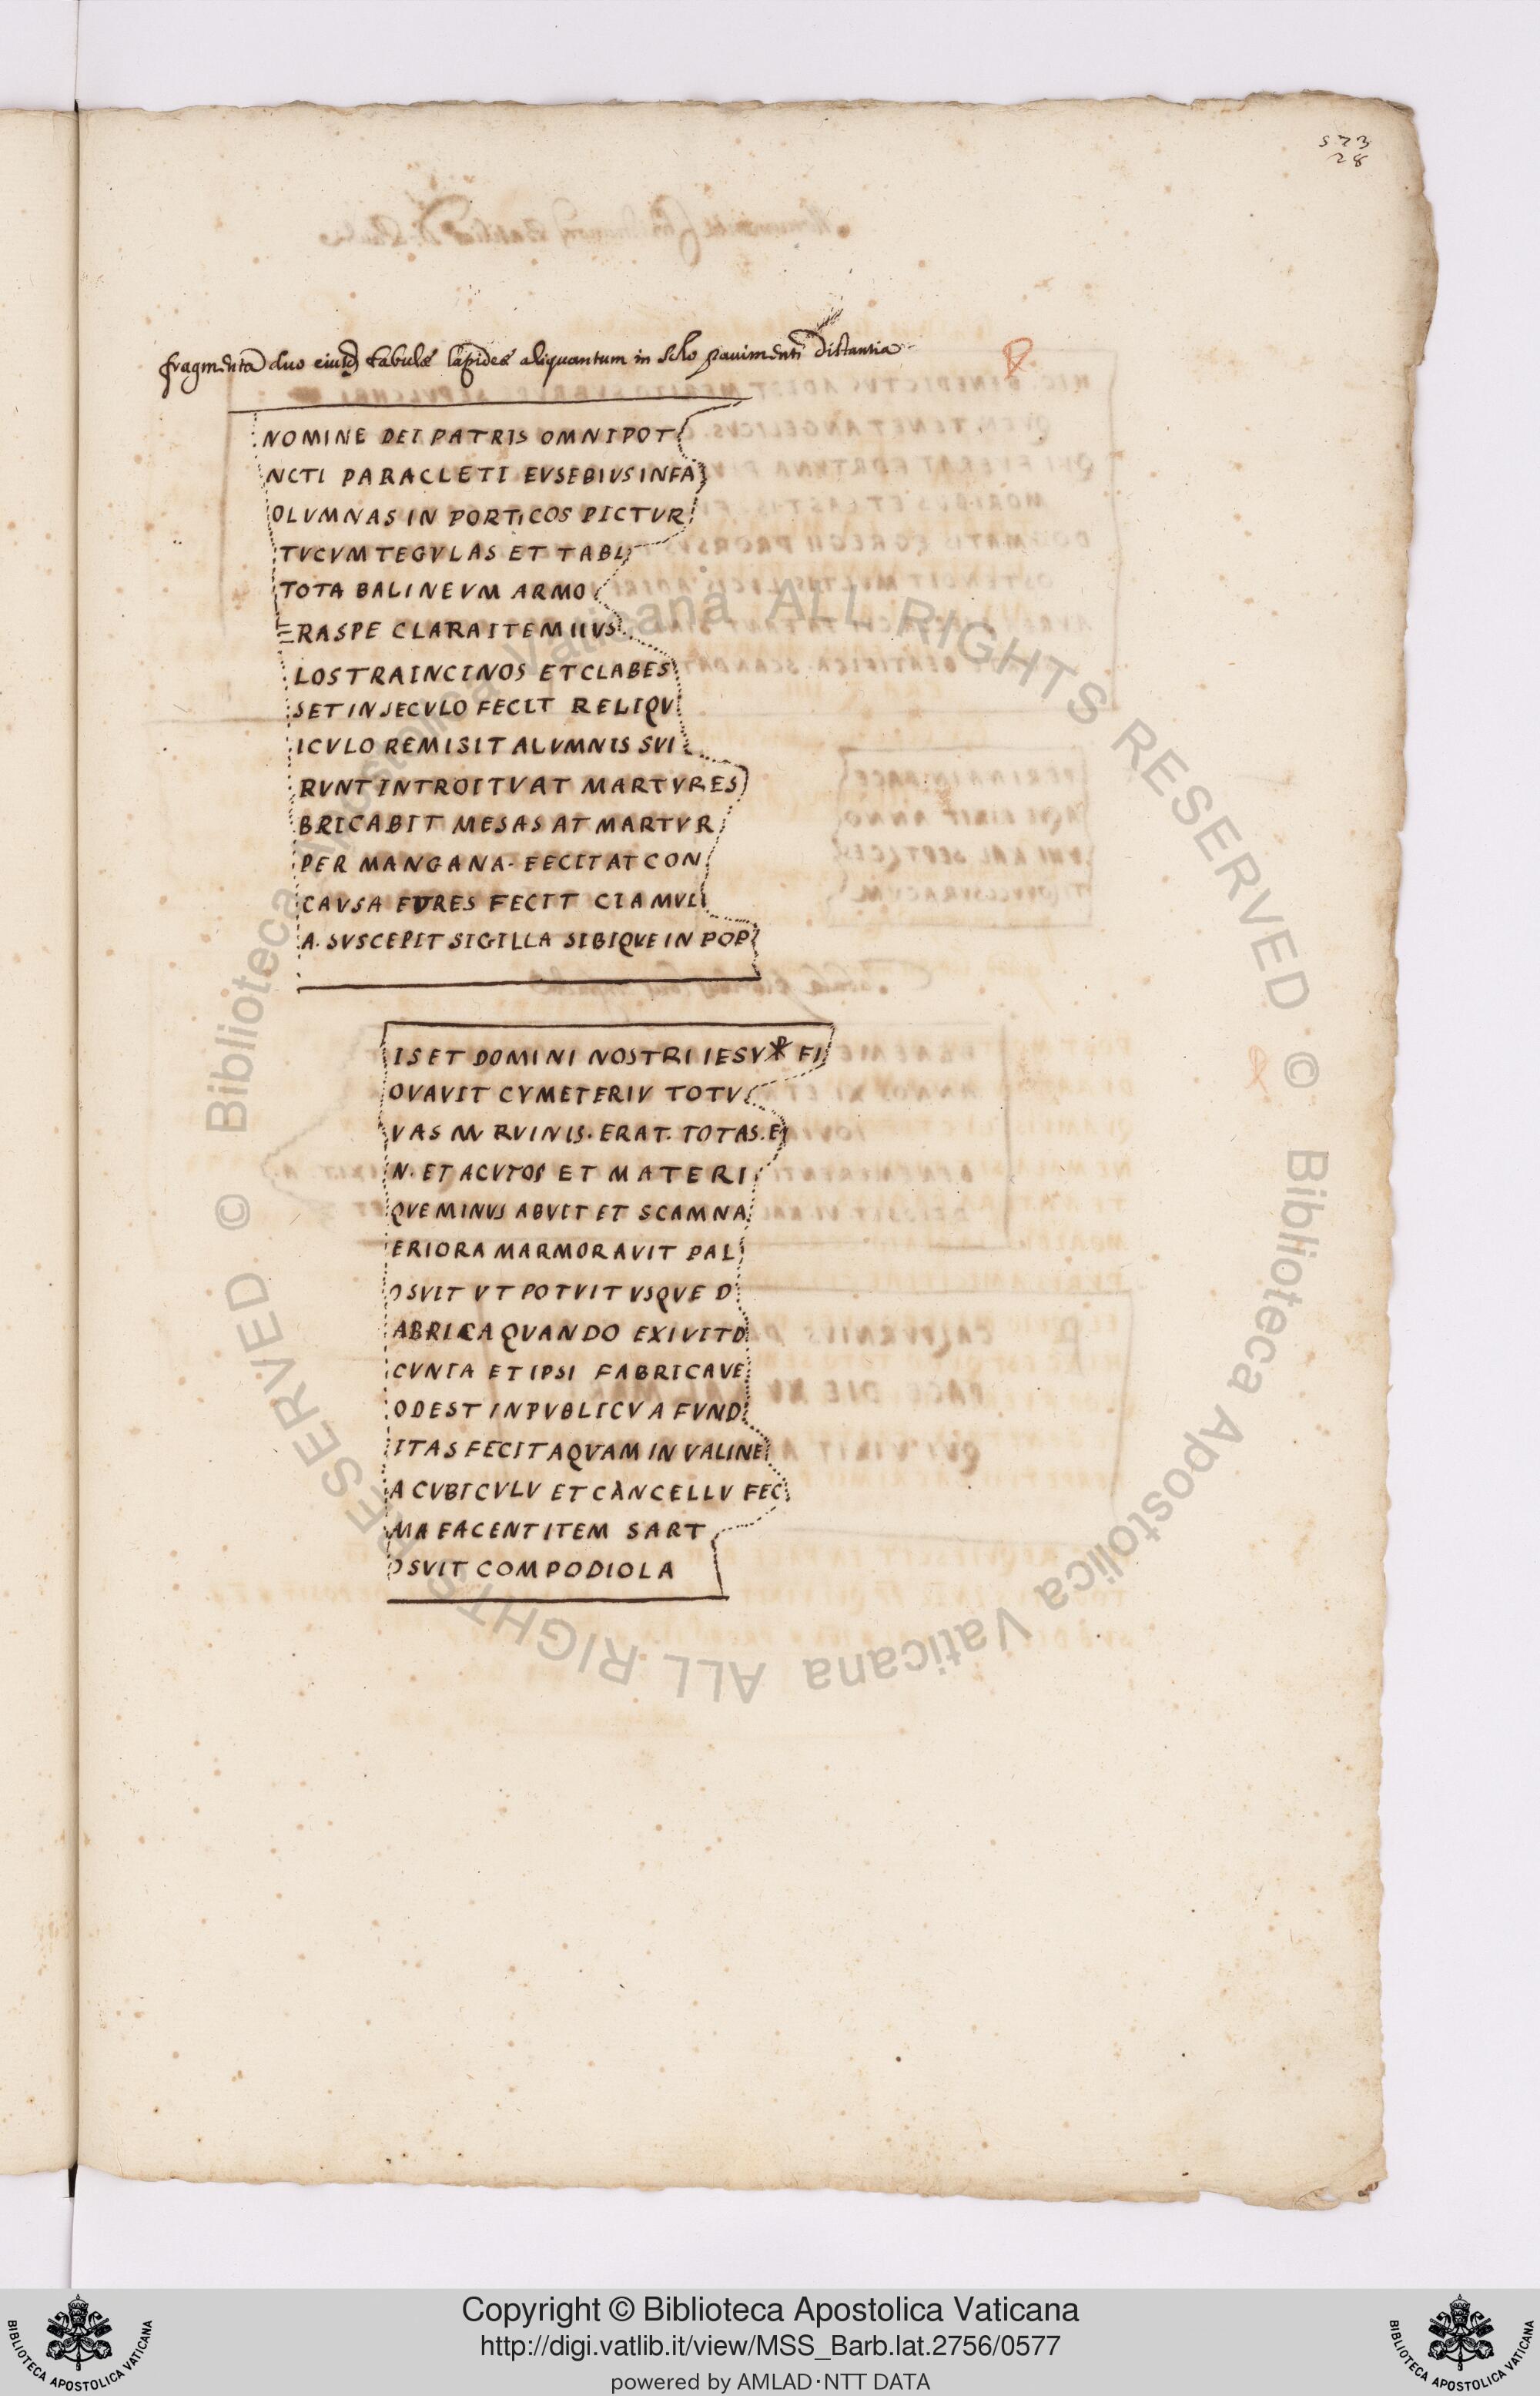 573
28
fragmenta duo eiusd tabulæ lapideæ aliquantum in solo pavimenti distantia
NOMINE DEI PATRIS OMNIPOT
NCTI PARACLETI EVSEBIVS INFA
OLVMNAS IN PORTICOS PICTVR
TVCVM TEGVLAS ET TABL
TOTA BALINEVM ARMO
ERASPE CLARAITEM IIVS
LOSTRAINCINOS ET CLABES
SET IN SECVLO FECIT RELIQV
ICVLO REMISIT ALVMNIS SVI
RVNT INTROITV AT MARTVRES
BRICABIT MESAS AT MARTVR
PER MANGANA. FECIT AT CON
CAVSA FVRES FECIT CIAMVL
A. SVSCEPIT SIGILLA SIBIQVE IN POP
IS ET DOMINI NOSTRI IESV ☧ FI
OVAVIT CYMETERIV TOTV
VAS IN RVINIS. ERAT. TOTAS. E
N. ET ACVTOS ET MATERI
QVE MINVS ABVIT ET SCAMNA
ERIORA MARMORAVIT PAL
OSVIT VT POTVIT VSQVE D
ABRICA QVANDO EXIVIT D
CVNIA ET IPSI FABRICAVE
ODEST IN PVBLICV A FVND
ITAS FECIT AQVAM IN VALINE
A CVBICVLV ET CANCELLV FEC
MA FACENT ITEM SART
OSVIT COMPODIOLA
Copyright © Biblioteca Apostolica Vaticana
http://digi.vatlib.it/view/MSS_Barb.lat.2756/0577
powered by AMLAD·NTT DATA
BIBLIOTECA APOSTOLICA VATICANA
BIBLIOTECA APOSTOLICA VATICANA
© Biblioteca Apostolica Vaticana ALL RIGHTS RESERVED
© Biblioteca Apostolica Vaticana ALL RIGHTS RESERVED